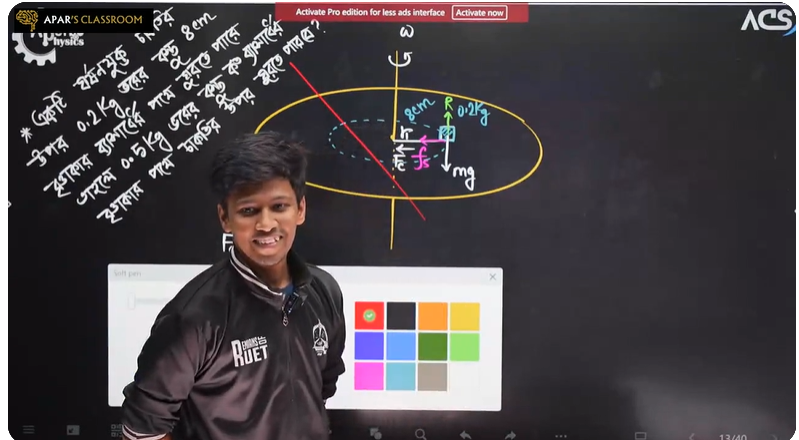 APAR'S CLASSROOM
Physics
Activate Pro edition for less ads interface
Activate now
ACS
* একটি ঘর্ষনযুক্ত চাকতির
উপর 0.2 kg ভরের বস্তু 8cm
বৃত্তাকার ব্যাসার্ধের পথে ঘুরতে পারে
তাহলে 0.5 kg ভরের বস্তু কত ব্যাসার্ধের
বৃত্তাকার পথে চাকতির উপর ঘুরতে পারবে?
ω
8cm
R
0.2kg
r
Fc
fs
mg
F
Soft pen
RUET
13/40